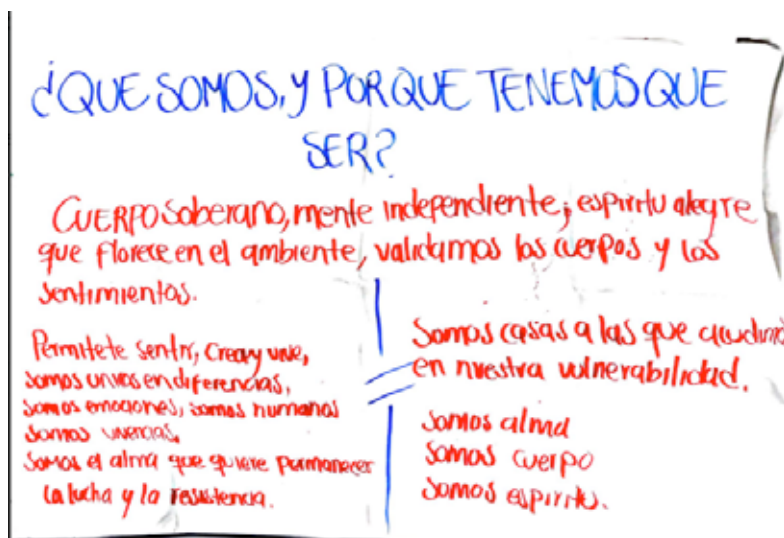 ¿QUE SOMOS, Y PORQUE TENEMOS QUE
SER?
CUERPO Soberano, mente independiente, espiritu alegre
que florece en el ambiente, validamos los cuerpos y los
sentimientos.
Permitete sentir, Crear y vive,
somos unicos en diferencias,
somos emociones, somos humanos
somos vivencias,
somos el alma que quiere permanecer
la lucha y la resistencia.
Somos casas a las que acudimos
en nuestra vulnerabilidad.
somos alma
somos cuerpo
somos espiritu.